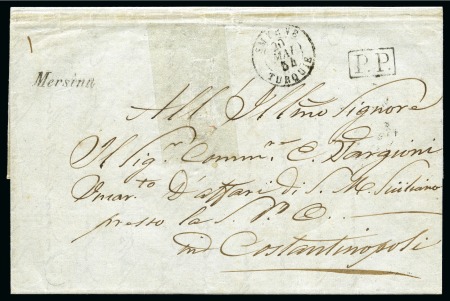 SMYRNE
20
MAI
54
TURQUIE
P.P.
Mersina
All' Ill͞mo Signore
Il Sig.r Comm.re C. Targioni
Incar.to D'affari di S. M. Siciliana
presso la S. P. O.
in Costantinopoli